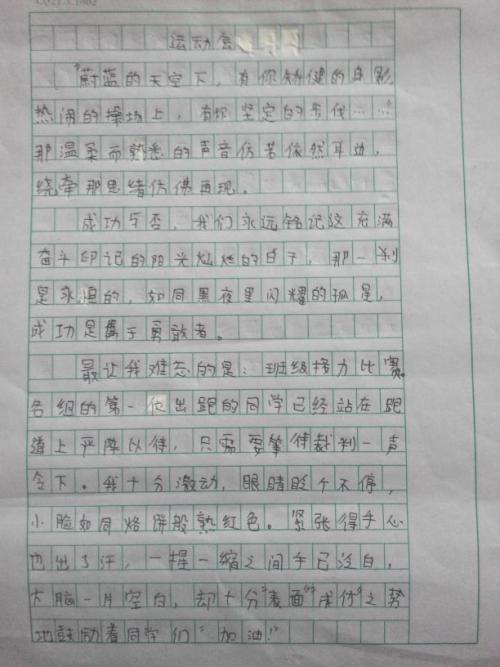 运动会
"蔚蓝的天空下，有你矫健的身影，
热闹的操场上，有你坚定的步伐……"
那温柔而熟悉的声音仿若依然耳边，
绕牵那思绪仿佛再现。
成功与否，我们永远铭记这充满
奋斗印记的阳光灿烂的日子，那一刹
是永恒的，如同黑夜里闪耀的孤星，
成功是属于勇敢者。
最让我难忘的是：班级接力比赛。
各组的第一位出跑的同学已经站在跑
道上严阵以待，只需要等待裁判一声
令下。我十分激动，眼睛眨个不停，
小脸如同烙饼般熟红色。紧张得手心
也出了汗，一握一缩之间手已泛白，
大脑一片空白，却十分"表面"之努
地鼓励着同学们"加油！"